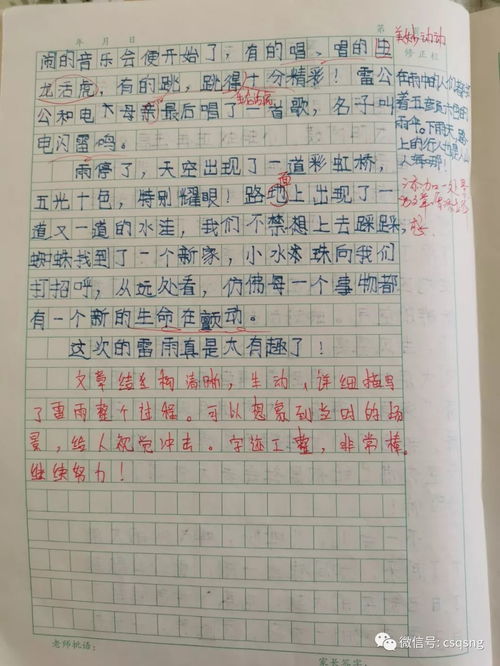 年 月 日
第
闹的音乐会便开始了，有的唱，唱的生
龙活虎，有的跳，跳得十分精彩！雷公
公和电大母亲最后唱了一首歌，名子叫
电闪雷鸣。
雨停了，天空出现了一道彩虹桥，
五光十色，特别耀眼！路地上出现了一
面
道又一道的水洼，我们不禁想上去踩踩，
蜘蛛找到了一个新家，小水珠向我们
打招呼，从远处看，仿佛每一个事物都
有一个新的生命在颤动。
这次的雷雨真是太有趣了！
文章结构清晰，生动，详细描写
了雷雨整个过程。可以想象到当时的场
景，给人视觉冲击。字迹工整，非常棒。
继续努力！
修正栏
在雨中的人们
着五颜六色的
雨伞。下雨天，路
上的行人也是人山
人海哪！
老师批语：
家长签字：
微信号: csqsng